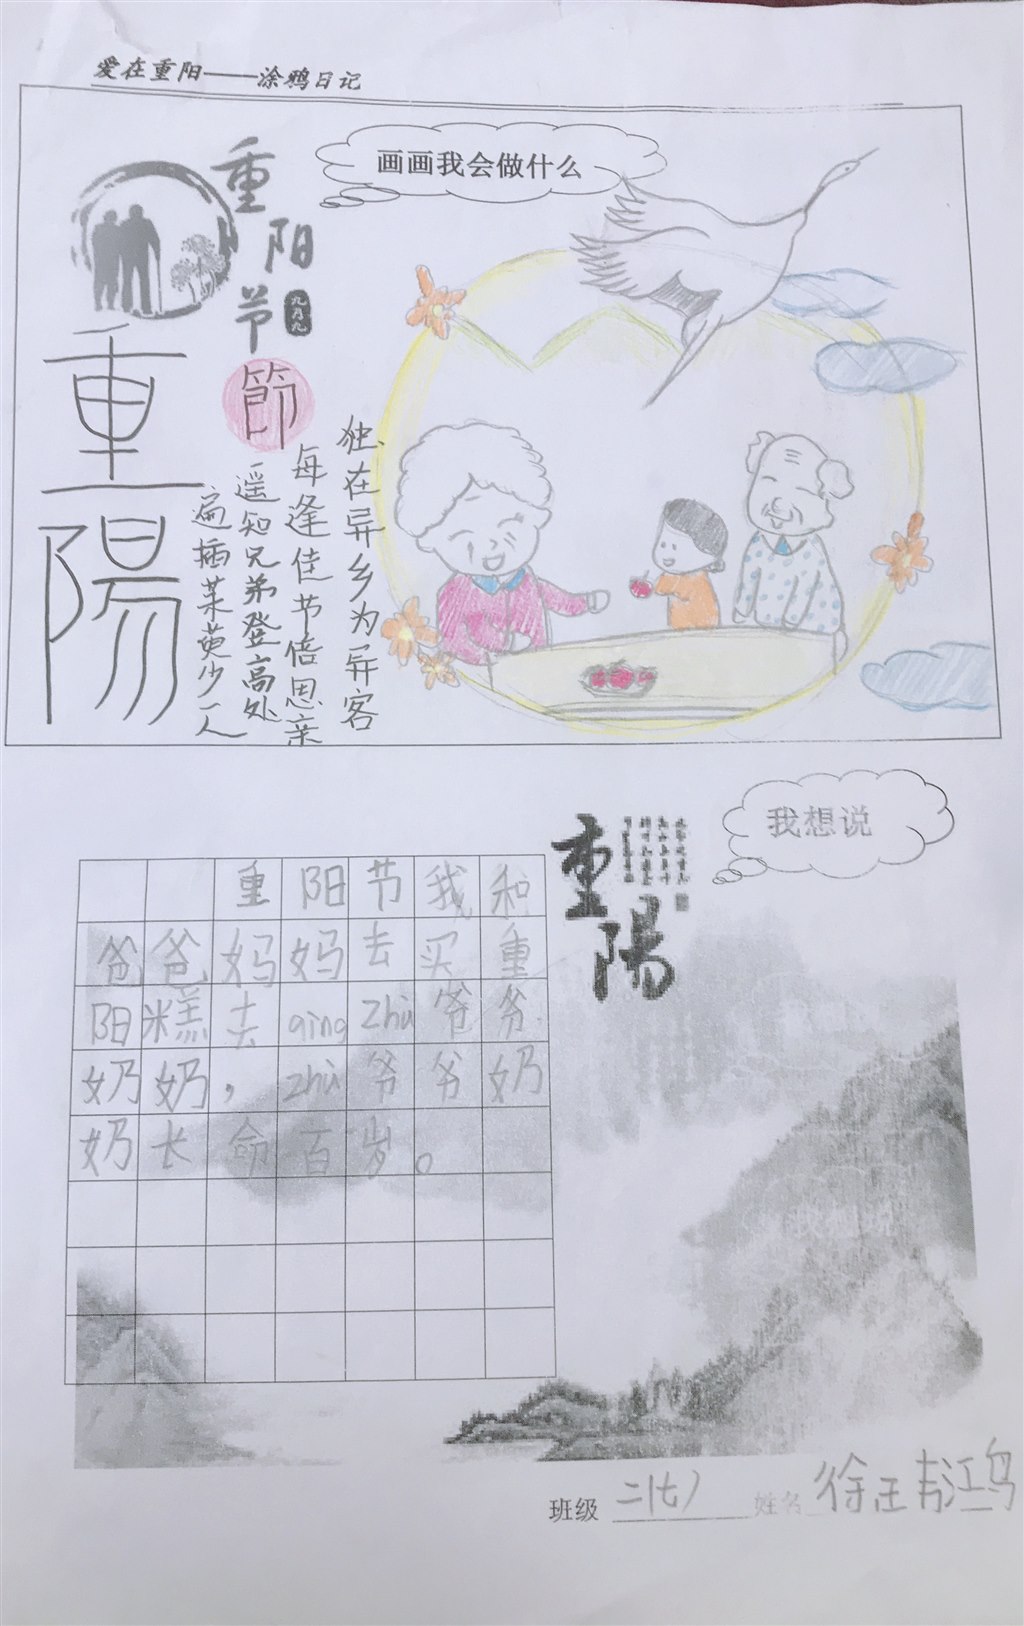 爱在重阳——涂鸦日记
画画我会做什么
重阳节
九月九
重陽
節
独在异乡为异客
每逢佳节倍思亲
遥知兄弟登高处
遍插茱萸少一人
我想说
重陽
重阳节我和
爸爸妈妈去买重
阳糕去qing zhù爷爷
奶奶，zhù爷爷奶
奶长命百岁。
班级 二(七) 姓名 徐王韦江鸟